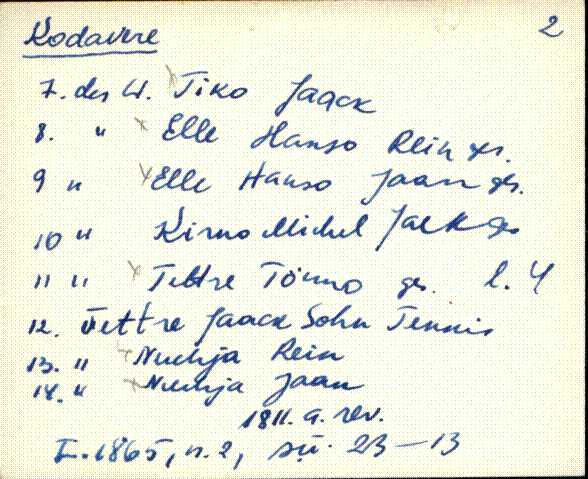 Kodavere 2
7. des W. Tiko Jaack
8. " Elle Hanso Rein gs.
9 " Elle Hanso Jaan gs.
10 " Kirno Michel Jaek gs
11 " Tettre Tönno gs. l. 4
12. Tettre Jaack Sohn Tennis
13. " Nuchja Rein
14. " Nuchja Jaan
1811. a. rev.
F. 1865, n. 2, sü. 23-13